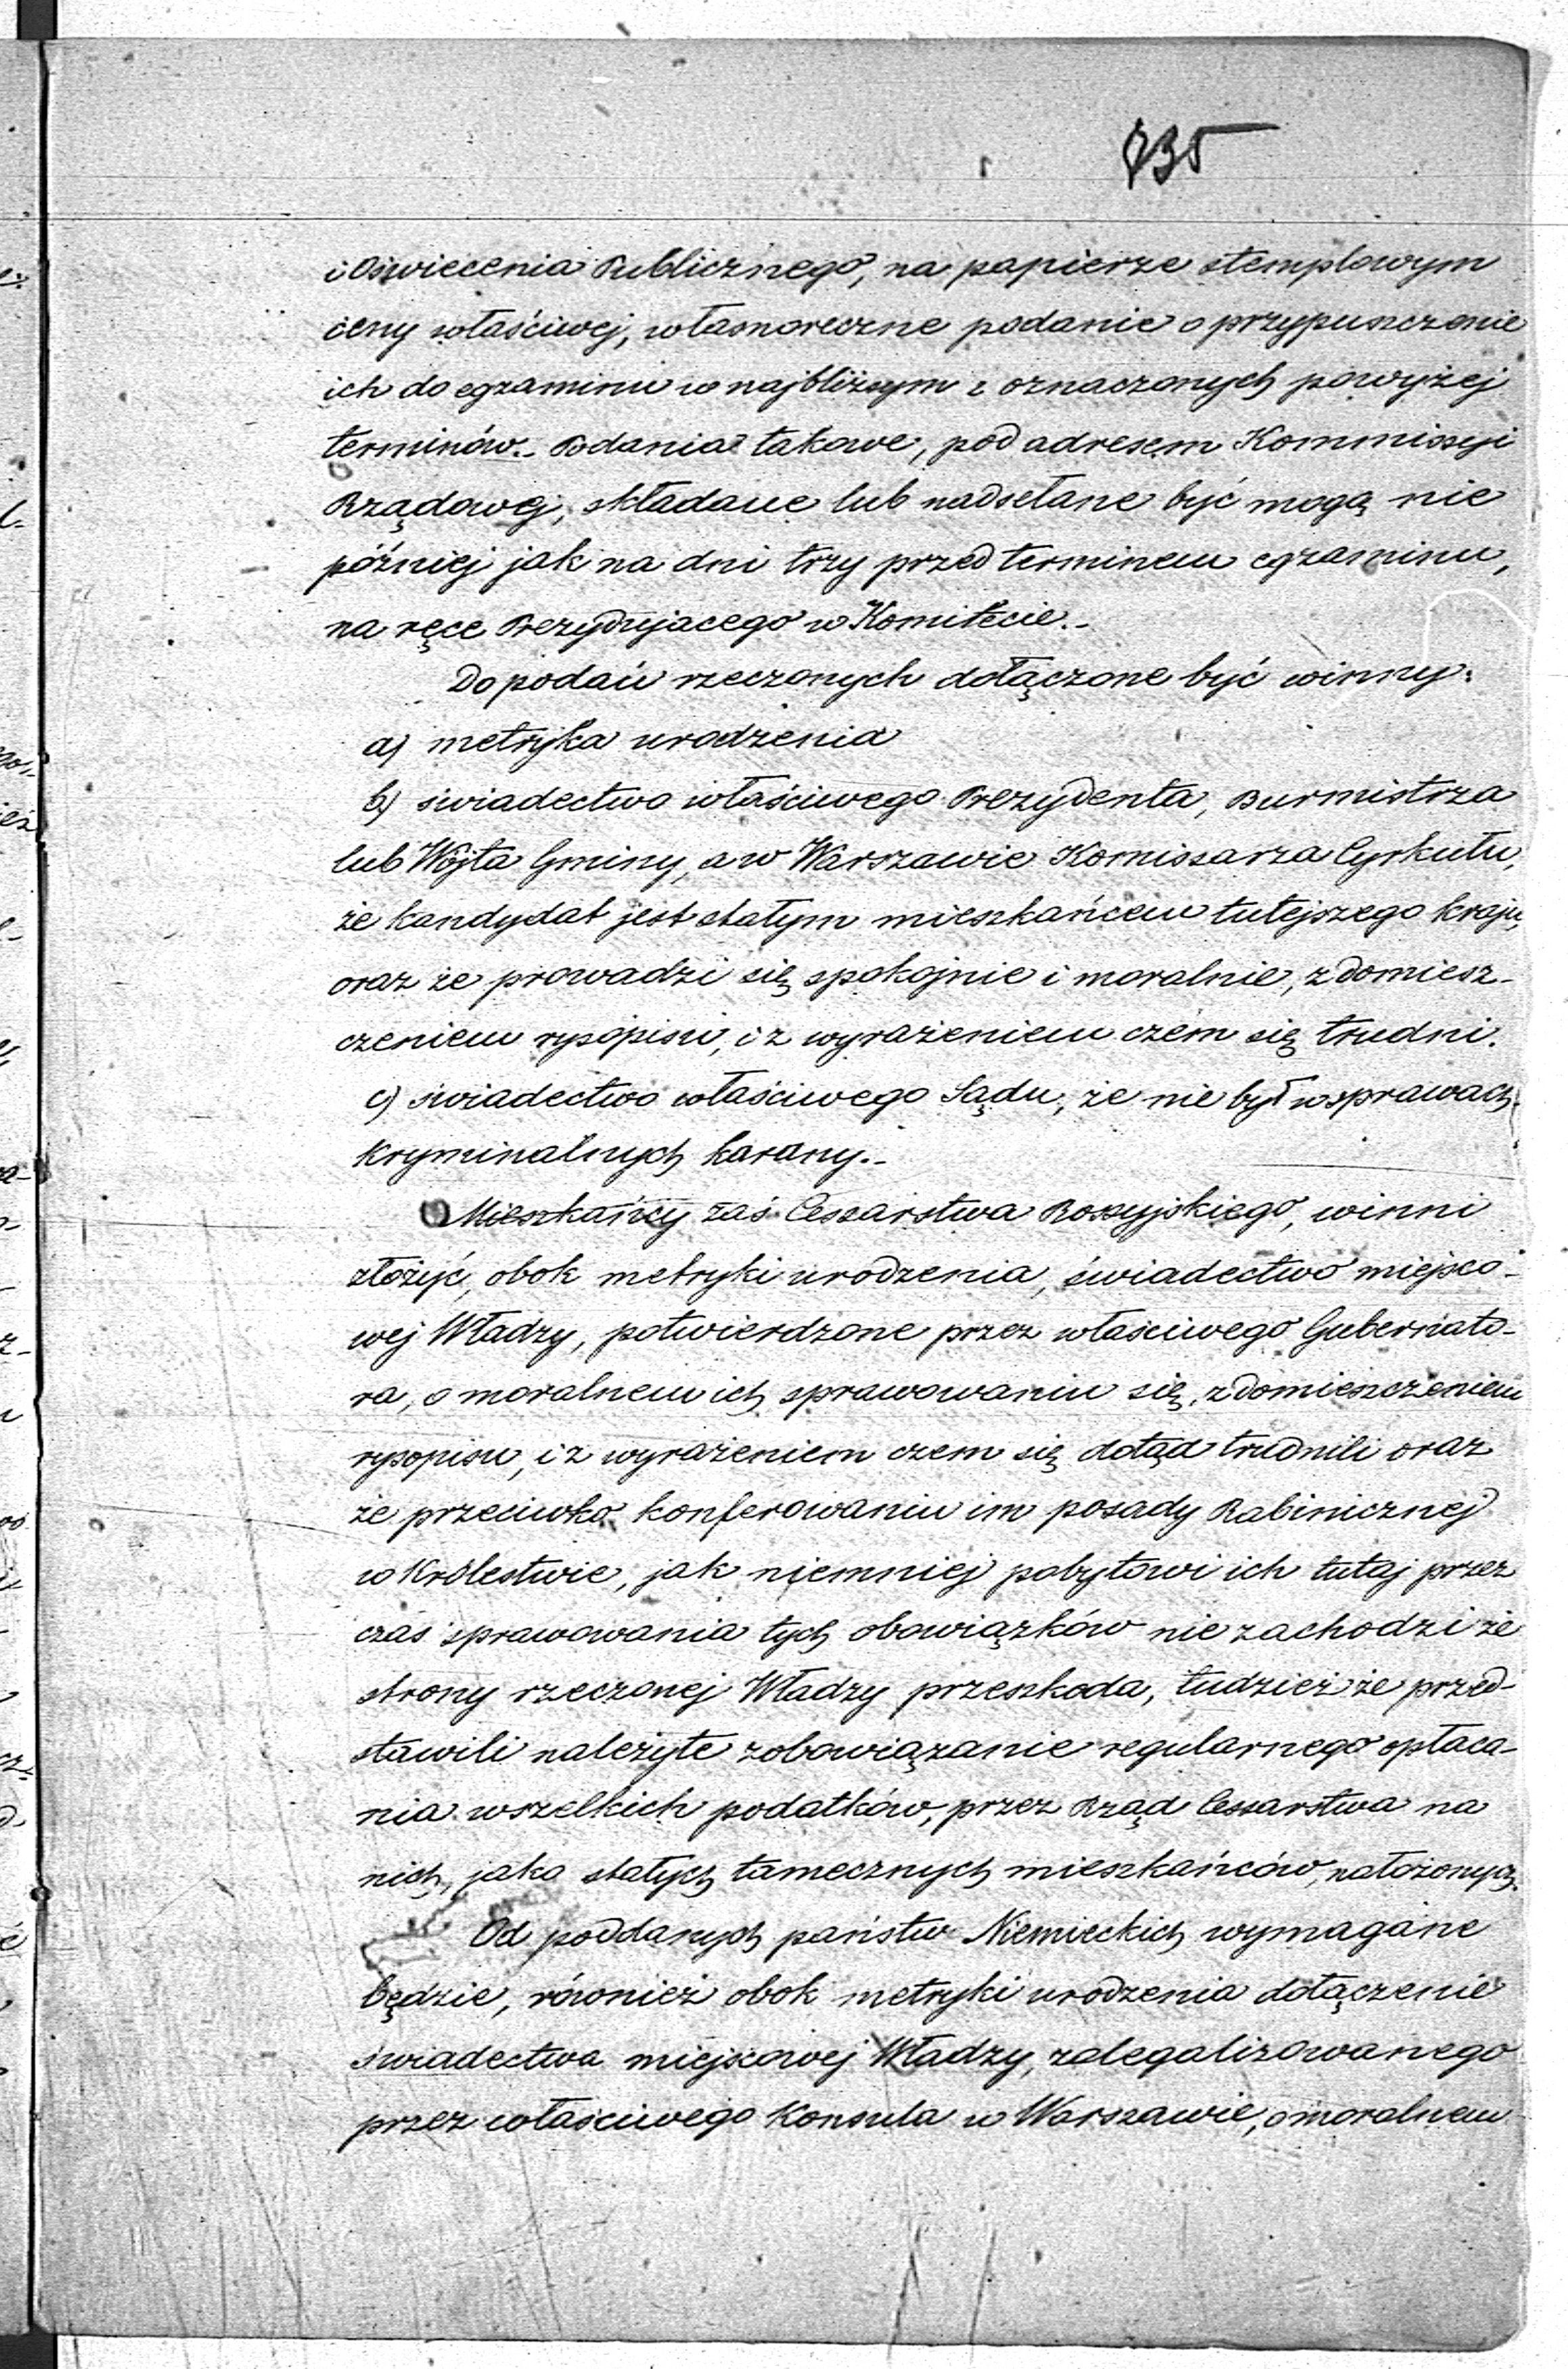 735
i Oświecenia Publicznego, na papierze stemplowym
ceny właściwej, własnoręczne podanie o przypuszczenie
ich do egzaminu w najbliższym z oznaczonych powyżej
terminów. Podania takowe, pod adresem Kommissyi
Rządowej, składane lub nadsełane być mogą nie
później jak na dni trzy przed terminem egzaminu,
na ręce Prezydującego w Komitecie.
Do podań rzeczonych dołączone być winny:
a) metryka urodzenia
b) świadectwo właściwego Prezydenta, Burmistrza
lub Wójta Gminy, a w Warszawie Komissarza Cyrkułu,
że kandydat jest stałym mieszkańcem tutejszego kraju,
oraz że prowadzi się spokojnie i moralnie, z domiesz-
czeniem rysopisu, i z wyrażeniem czem się trudni.
c) świadectwo właściwego Sądu, że nie był w sprawach
kryminalnych karany.
Mieszkańcy zaś Cessarstwa Rossyjskiego, winni
złożyć, obok metryki urodzenia, świadectwo miejsco-
wej Władzy, potwierdzone przez właściwego Gubernato-
ra, o moralnem ich sprawowaniu się, z domieszczeniem
rysopisu, i z wyrażeniem czem się dotąd trudnili oraz
że przeciwko konferowaniu im posady Rabinicznej
w Królestwie, jak niemniej pobytowi ich tutaj przez
czas sprawowania tych obowiązków nie zachodzi ze
strony rzeczonej Władzy przeszkoda, tudzież że przed-
stawili należyte zobowiązanie regularnego opłaca-
nia wszelkich podatków, przez Rząd Cessarstwa na
nich, jako stałych tamecznych mieszkańców, nałożonych.
Od poddanych państw Niemieckich wymagane
będzie, również obok metryki urodzenia dołączenie
świadectwa miejscowej Władzy, zalegalizowanego
przez właściwego Konsula w Warszawie, o moralnem